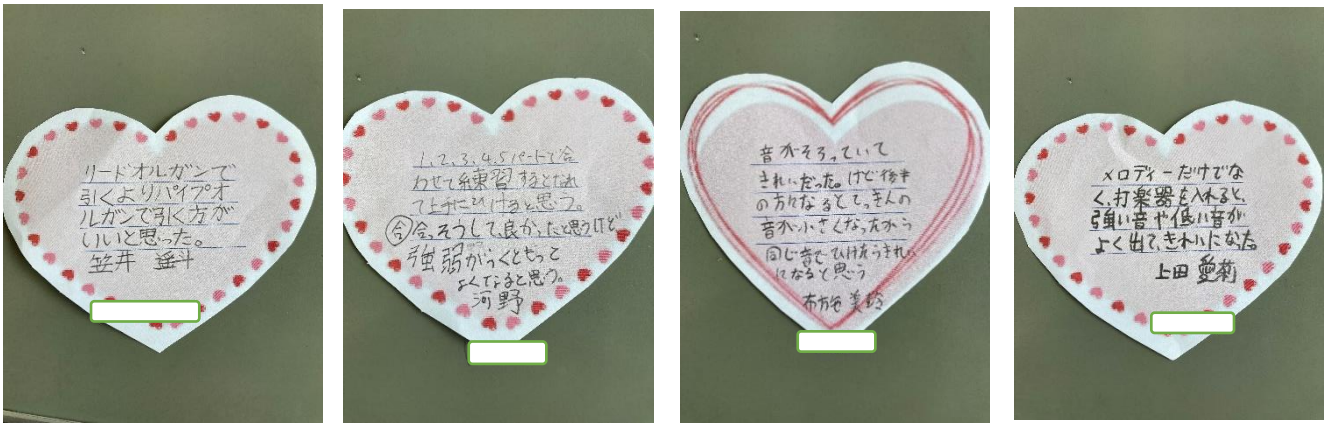 リードオルガンで
引くよりパイプオ
ルガンで引く方が
いいと思った。
笠井
1、2、3、4、5パートで合
わせて練習するとなれ
て上手にひけると思う。
合 合そうして、良かったと思うけど
強弱がつくともっと
よくなると思う。
河野
音がそろっていて
きれいだった。けど後半
の方になるとてっきんの
音が小さくなったから
同じ音でひけたらきれい
になると思う
布施 美
メロディーだけでな
く、打楽器を入れると、
強い音や低い音が
よく出て、きれいになった
上田 愛菊